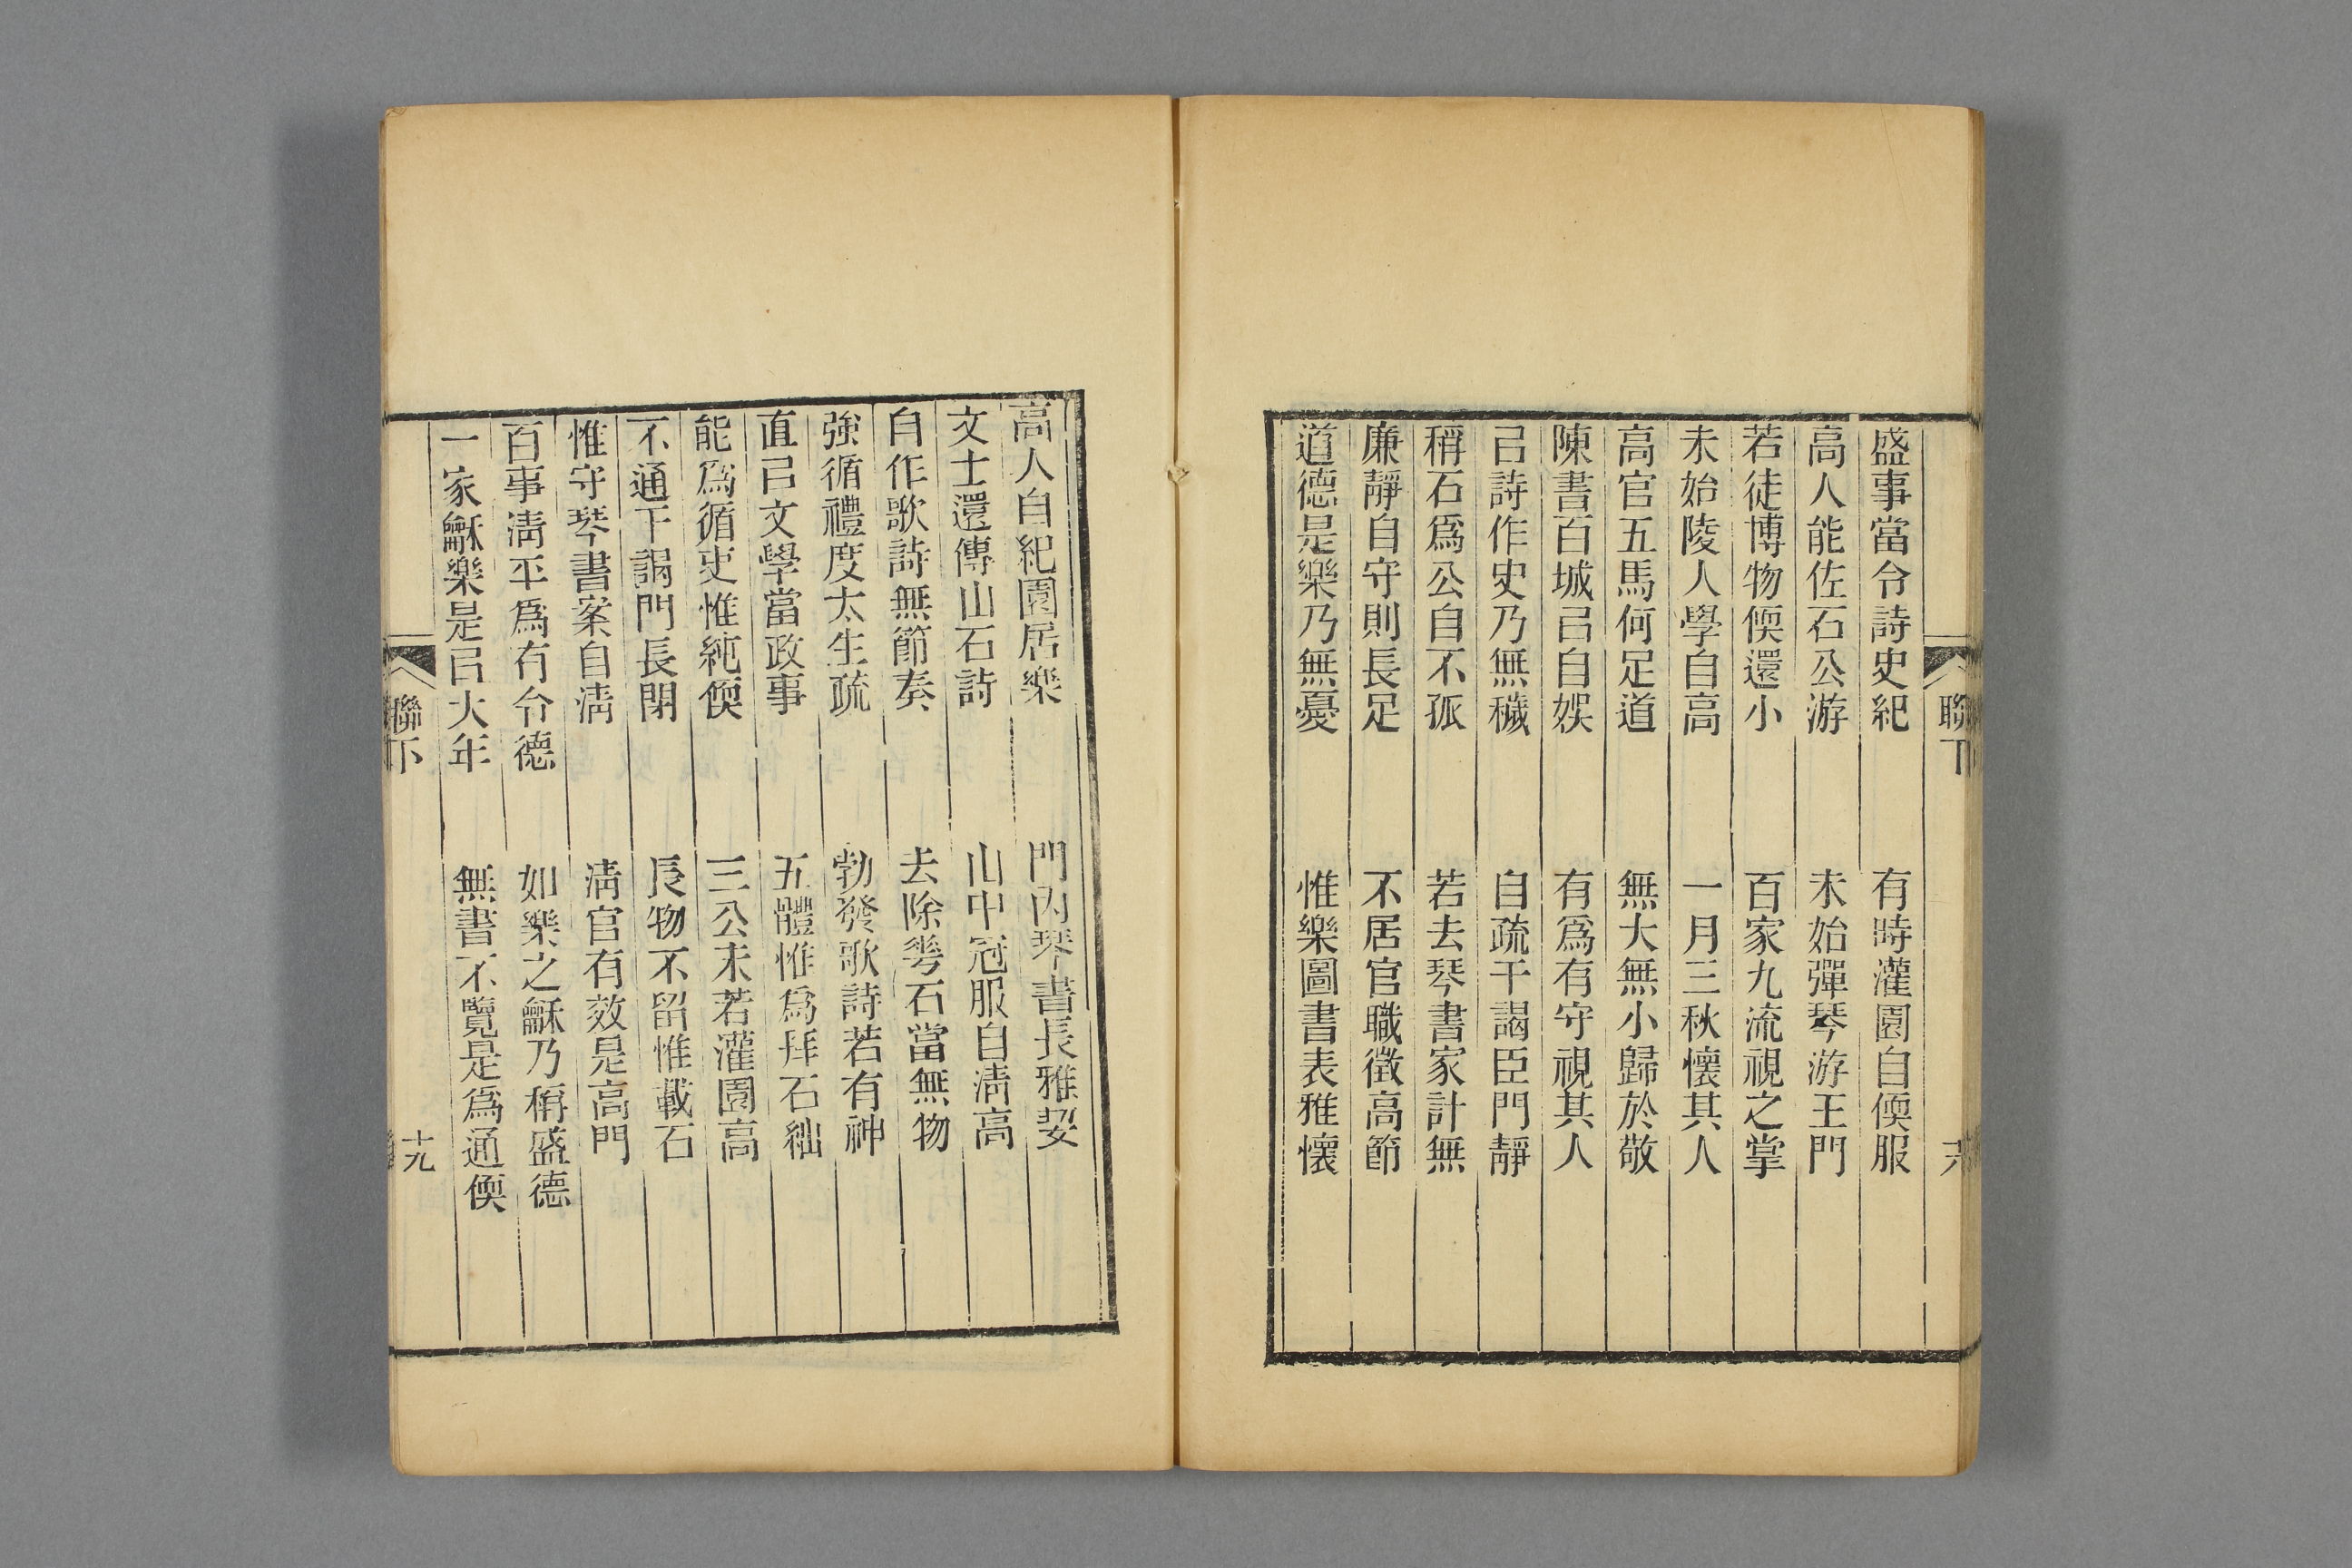 盛事當令詩史紀　有時灌園自偄服
高人能佐石公游　未始彈琴游王門
若徒博物偄還小　百家九流視之掌
未始陵人學自高　一月三秋懷其人
高官五馬何足道　無大無小歸於敬
陳書百城㠯自娛　有爲有守視其人
㠯詩作史乃無穢　自疏干謁臣門靜
稱石爲公自不孤　若去琴書家計無
廉靜自守則長足　不居官職徵高節
道德是樂乃無憂　惟樂圖書表雅懷
聯下
高人自紀園居樂　門內琴書長雅娛
文士還傳山石詩　山中冠服自清高
自作歌詩無節奏　去除琴石當無物
強循禮度太生疏　勃發歌詩若有神
直㠯文學當政事　五體惟爲拜石絀
能爲循吏惟純偄　三公未若灌園高
不通干謁門長閉　長物不留惟載石
惟守琴書案自清　清官有效是高門
百事清平爲有令德　如樂之龢乃稱盛德
一家龢樂是㠯大年　無書不覽是爲通偄
聯下
十九